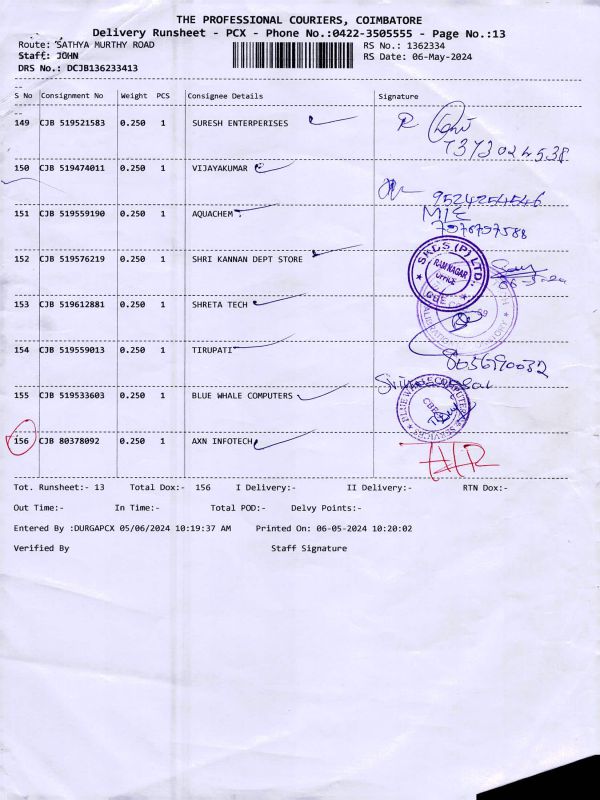 THE PROFESSIONAL COURIERS, COIMBATORE
Delivery Runsheet - PCX - Phone No.:0422-3505555 - Page No.:13
Route: SATHYA MURTHY ROAD RS No.: 1362334
Staff: JOHN RS Date: 06-May-2024
DRS No.: DCJB136233413
S No Consignment No Weight PCS Consignee Details Signature
149 CJB 519521583 0.250 1 SURESH ENTERPERISES
7373024538
150 CJB 519474011 0.250 1 VIJAYAKUMAR
9524254546
151 CJB 519559190 0.250 1 AQUACHEM
152 CJB 519576219 0.250 1 SHRI KANNAN DEPT STORE
SKDS (P) LTD.,
RAM NAGAR
OFFICE
CBE
153 CJB 519612881 0.250 1 SHRETA TECH
154 CJB 519559013 0.250 1 TIRUPATI
155 CJB 519533603 0.250 1 BLUE WHALE COMPUTERS
BLUE WHALE COMPUTER
CBE
156 CJB 80378092 0.250 1 AXN INFOTECH
Tot. Runsheet:- 13 Total Dox:- 156 I Delivery:- II Delivery:- RTN Dox:-
Out Time:- In Time:- Total POD:- Delvy Points:-
Entered By :DURGAPCX 05/06/2024 10:19:37 AM Printed On: 06-05-2024 10:20:02
Verified By Staff Signature